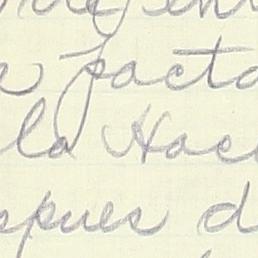 e pacto
la Hac
spues d